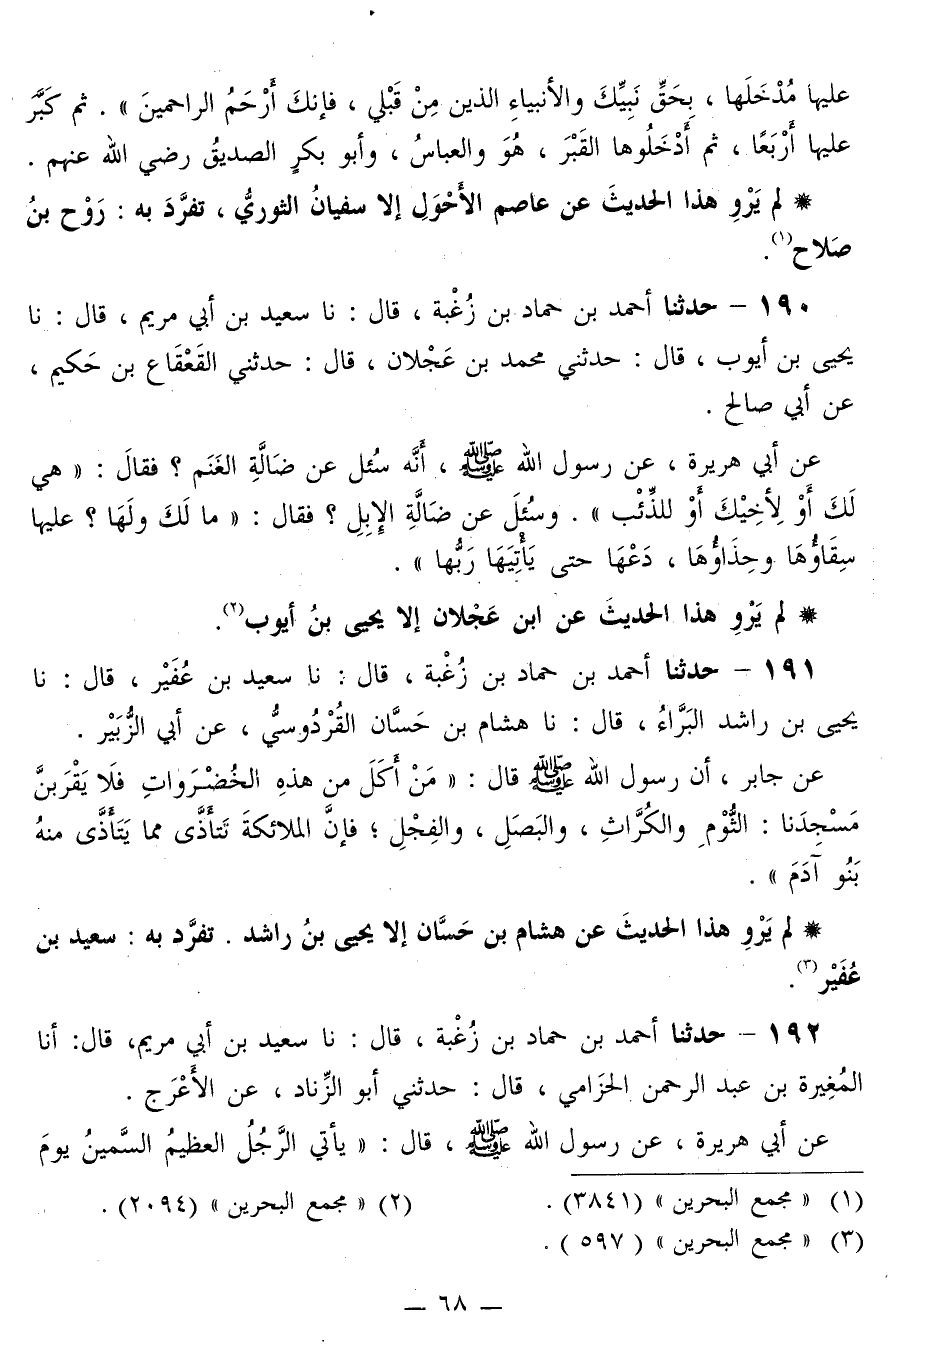 عليها مُدْخَلَها ، بِحَقِّ نَبِيِّكَ والأنبياءِ الذين مِنْ قَبْلي ، فإنكَ أَرْحَمُ الراحمينَ » . ثم كَبَّرَ
عليها أَرْبَعًا ، ثم أَدْخَلُوها القَبْرَ ، هُوَ والعباسُ ، وأبو بكرٍ الصديقُ رضي الله عنهم .
* لم يَرْوِ هذا الحديثَ عن عاصم الأَحْوَلِ إلا سفيانُ الثوريُّ ، تفرَّدَ به : رَوْح بنُ
صَلاح(١).
١٩٠ – حدثنا أحمد بن حماد بن زُغْبة ، قال : نا سعيد بن أبي مريم ، قال : نا
يحيى بن أيوب ، قال : حدثني محمد بن عَجْلان ، قال : حدثني القَعْقَاع بن حَكيم ،
عن أبي صالح .
عن أبي هريرة ، عن رسول الله ﷺ ، أَنَّه سُئل عن ضَالَّةِ الغَنَم ؟ فقالَ : « هي
لَكَ أَوْ لِأخِيْكَ أَوْ للذِّئْب » . وسُئلَ عن ضَالَّةِ الإبِلِ ؟ فقال : « ما لَكَ ولَهَا ؟ عليها
سِقَاؤُهَا وحِذَاؤُهَا ، دَعْهَا حتى يَأْتِيَهَا رَبُّها » .
* لم يَرْوِ هذا الحديثَ عن ابن عَجْلان إلا يحيى بنُ أيوب(٢).
١٩١ – حدثنا أحمد بن حماد بن زُغْبة ، قال : نا سعيد بن عُفَيْر ، قال : نا
يحيى بن راشد البَرَّاءُ ، قال : نا هشام بن حَسَّان القُرْدُوسيُّ ، عن أبي الزُّبَيْر .
عن جابر ، أن رسول الله ﷺ قال : « مَنْ أَكَلَ من هذهِ الخُضْرَواتِ فلَا يَقْرَبنَّ
مَسْجِدَنا : الثُّوْمِ والكُرَّاثِ ، والبَصَلِ ، والفِجْلِ ؛ فإنَّ الملائكةَ تَتأَذَّى مما يَتَأَذَّى منهُ
بَنُو آدَمَ » .
* لم يَرْوِ هذا الحديثَ عن هشام بن حَسَّان إلا يحيى بنُ راشد . تفرَّد به : سعيد بن
عُفَيْر(٣).
١٩٢ – حدثنا أحمد بن حماد بن زُغْبة ، قال : نا سعيد بن أبي مريم، قال: أنا
المُغِيرة بن عبد الرحمن الحزَامي ، قال : حدثني أبو الزِّناد ، عن الأَعْرَج .
عن أبي هريرة ، عن رسول الله ﷺ ، قال : « يأتي الرَّجُلُ العظيمُ السَّمينُ يومَ
(١) « مجمع البحرين » (٣٨٤١) . (٢) « مجمع البحرين » (٢٠٩٤) .
(٣) « مجمع البحرين » ( ٥٩٧ ) .
— ٦٨ —